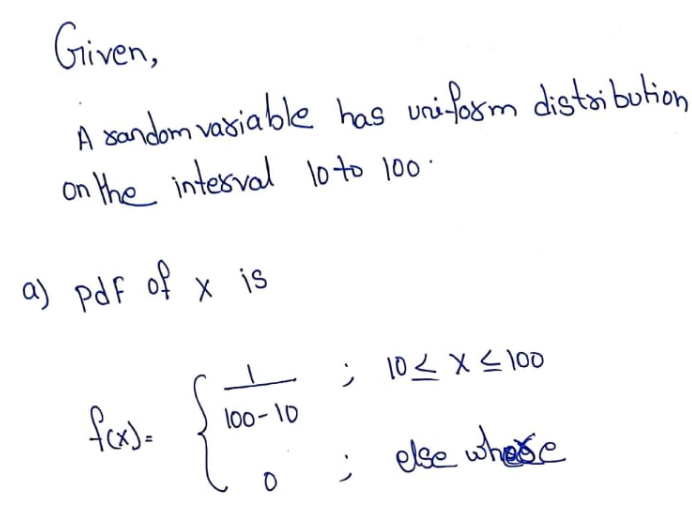 Given,
A random variable has uniform distribution
on the interval 10 to 100.
a) pdf of x is
f(x) = { 1/(100-10) ; 10 ≤ x ≤ 100
0 ; else where